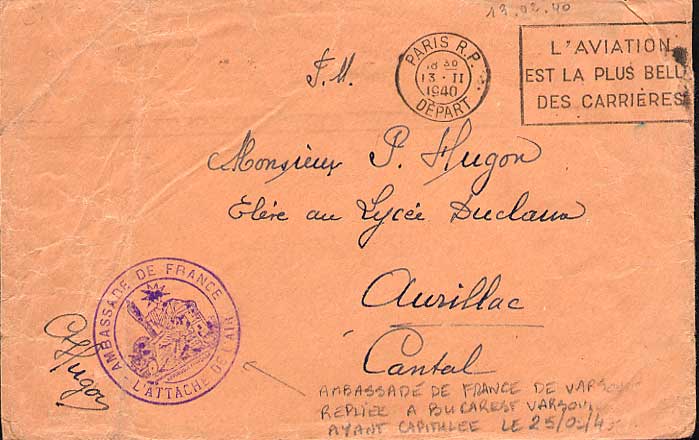 13.02.40
PARIS R.P.
18 30
13 - II
1940
DÉPART
L'AVIATION
EST LA PLUS BELL
DES CARRIÈRES
F.M.
Monsieur P. Hugon
Elève au Lycée Duclaux
Aurillac
Cantal
AMBASSADE DE FRANCE
L'ATTACHE DE L'AIR
Hugon
AMBASSADE DE FRANCE DE VARSO
REPLIEE A BUCAREST VARSOVI
AYANT CAPITULEE LE